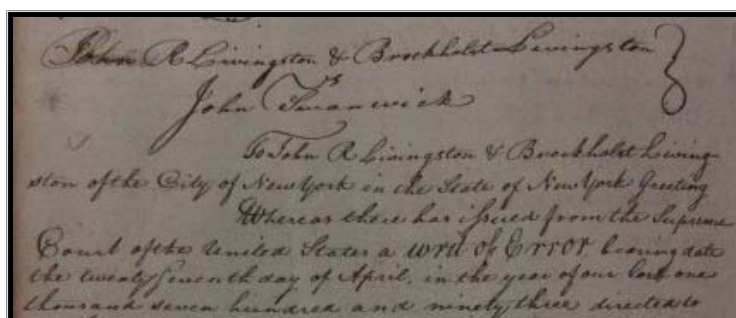 John R Livingston & Brockholst Livingston
vs
John Swanwick
To John R Livingston & Brockholst Living
ston of the City of New York in the State of New York Greeting
Whereas there has issued from the Supreme
Court of the United States a writ of Error bearing date
the twenty Seventh day of April, in the year of our Lord one
thousand seven hundred and ninety three directed to